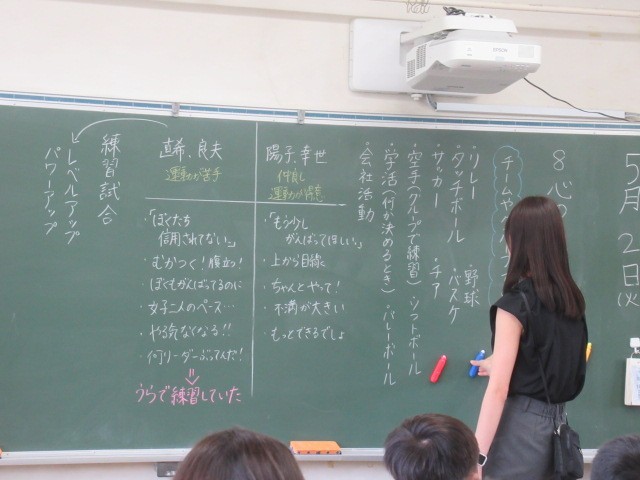 5月2日(火)
8 心の
チームや
・リレー ・野球
・タッチボール ・バスケ
・サッカー ・チア
・空手(クルップで練習) ・ソフトボール
・学活(何か決めるとき) ・バレーボール
・会社活動
陽子、幸世
仲良し
運動が得意
・「もう少し
がんばってほしい。」
・上から目線
・ちゃんとやって!
・不満が大きい
・もっとできるでしょ
直希、良夫
運動が苦手
・「ぼくたち
信用されてない。」
・むかつく!腹立つ!
・ぼくもがんばってるのに
・女子二人のペース…
・やる気なくなる!!
・何リーダーぶってんだ!
うらで練習していた
練習試合
レベルアップ
パワーアップ
EPSON